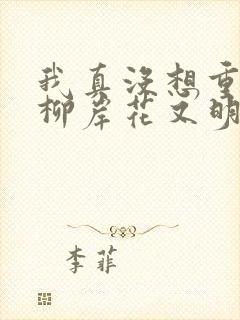 我真没想重
柳岸花又明
李菲